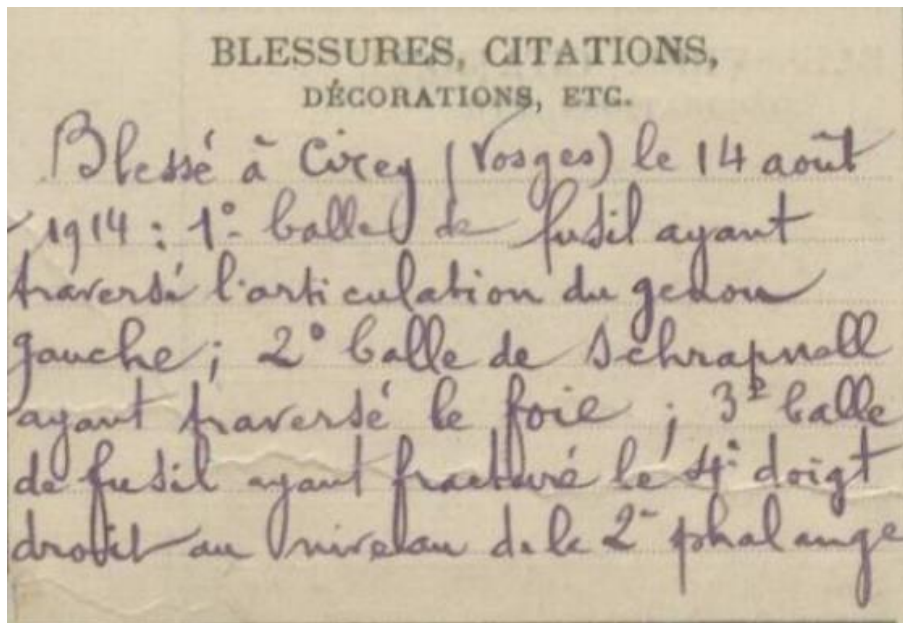 BLESSURES, CITATIONS,
DÉCORATIONS, ETC.
Blessé à Cirey (Vosges) le 14 août
1914 : 1° balle de fusil ayant
traversé l'articulation du genou
gauche ; 2° balle de schrapnell
ayant traversé le foie ; 3° balle
de fusil ayant fracturé le 4e doigt
droit au niveau de la 2e phalange